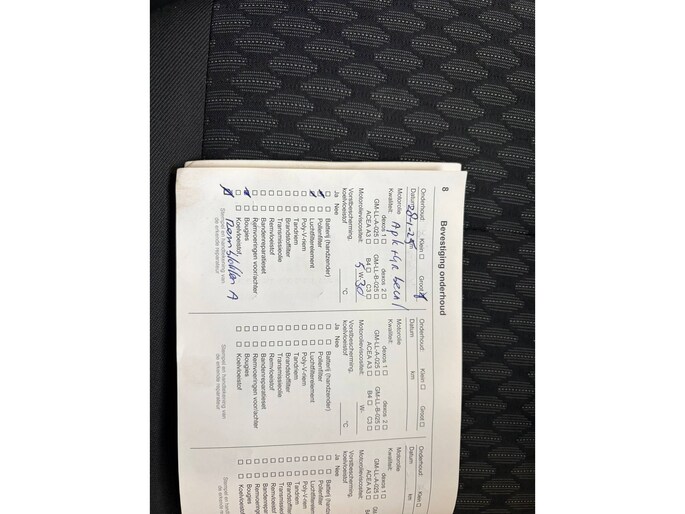 8 Bevestiging onderhoud
Onderhoud: Klein ☐ Groot
Datum 28-1-25 km
Motorolie
Kwaliteit: dexos 1 ☐ dexos 2 ☐
GM-LL-A-025 ☐ GM-LL-B-025 ☐
ACEA A3 ☐ B4 ☐ C3 ☐
Motorolieviscositeit: 5 W- 30
Vorstbescherming,
koelvloeistof °C
Ja Nee
☐ ☐ Batterij (handzender)
☐ Pollenfilter
☐ Luchtfilterelement
☐ ☐ Poly-V-riem
☐ ☐ Tandriem
☐ ☐ Brandstoffilter
☐ ☐ Transmissieolie
☐ ☐ Remvloeistof
☐ ☐ Bandenreparatieset
☐ ☐ Remvoeringen voor/achter
☐ Bougies
☐ Koelvloeistof
Stempel en handtekening van
de erkende reparateur
Onderhoud: Klein ☐ Groot ☐
Datum km
Motorolie
Kwaliteit: dexos 1 ☐ dexos 2 ☐
GM-LL-A-025 ☐ GM-LL-B-025 ☐
ACEA A3 ☐ B4 ☐ C3 ☐
Motorolieviscositeit: W-
Vorstbescherming,
koelvloeistof °C
Ja Nee
☐ ☐ Batterij (handzender)
☐ ☐ Pollenfilter
☐ ☐ Luchtfilterelement
☐ ☐ Poly-V-riem
☐ ☐ Tandriem
☐ ☐ Brandstoffilter
☐ ☐ Transmissieolie
☐ ☐ Remvloeistof
☐ ☐ Bandenreparatieset
☐ ☐ Remvoeringen voor/achter
☐ ☐ Bougies
☐ ☐ Koelvloeistof
Stempel en handtekening van
de erkende reparateur
Onderhoud: Klein ☐
Datum km
Motorolie
Kwaliteit: dexos 1 ☐
GM-LL-A-025 ☐
ACEA A3 ☐
Motorolieviscositeit:
Vorstbescherming,
koelvloeistof
Ja Nee
☐ ☐ Batterij (handzender)
☐ ☐ Pollenfilter
☐ ☐ Luchtfilterelement
☐ ☐ Poly-V-riem
☐ ☐ Tandriem
☐ ☐ Brandstoffilter
☐ ☐ Transmissieolie
☐ ☐ Remvloeistof
☐ ☐ Bandenreparatieset
☐ ☐ Remvoeringen
☐ ☐ Bougies
☐ ☐ Koelvloeistof